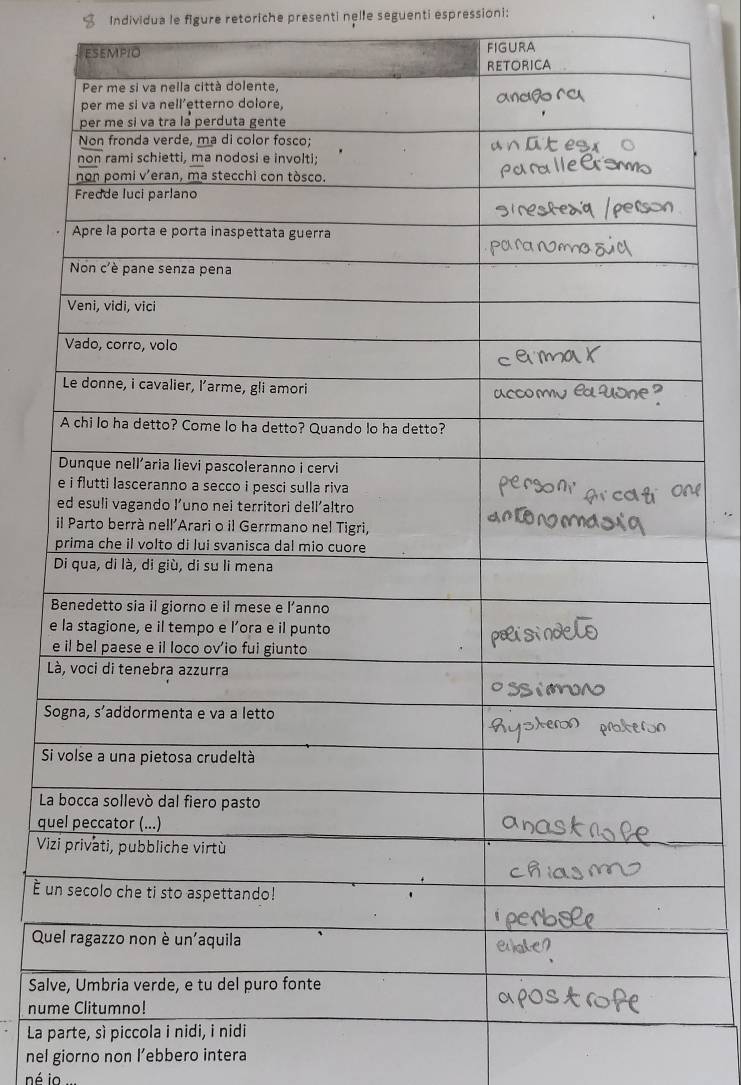 8 Individua le figure retoriche presenti nelle seguenti espressioni:
ESEMPIO
FIGURA
RETORICA
Per me si va nella città dolente,
per me si va nell'etterno dolore,
per me si va tra la perduta gente
anafora
Non fronda verde, ma di color fosco;
non rami schietti, ma nodosi e involti;
non pomi v'eran, ma stecchi con tòsco.
antitesi o
parallelismo
Fredde luci parlano
sinestesia / person
Apre la porta e porta inaspettata guerra
paranomasia
Non c'è pane senza pena
Veni, vidi, vici
Vado, corro, volo
climax
Le donne, i cavalier, l'arme, gli amori
accomulazione?
A chi lo ha detto? Come lo ha detto? Quando lo ha detto?
Dunque nell'aria lievi pascoleranno i cervi
e i flutti lasceranno a secco i pesci sulla riva
ed esuli vagando l'uno nei territori dell'altro
il Parto berrà nell'Arari o il Gerrmano nel Tigri,
prima che il volto di lui svanisca dal mio cuore
personificazione
antonomasia
Di qua, di là, di giù, di su li mena
Benedetto sia il giorno e il mese e l'anno
e la stagione, e il tempo e l'ora e il punto
e il bel paese e il loco ov'io fui giunto
polisindeto
Là, voci di tenebra azzurra
ossimoro
Sogna, s'addormenta e va a letto
hysteron proteron
Si volse a una pietosa crudeltà
La bocca sollevò dal fiero pasto
quel peccator (...)
anastrofe
Vizi privati, pubbliche virtù
chiasmo
È un secolo che ti sto aspettando!
iperbole
Quel ragazzo non è un'aquila
Salve, Umbria verde, e tu del puro fonte
nume Clitumno!
apostrofe
La parte, sì piccola i nidi, i nidi
nel giorno non l'ebbero intera
né io ...